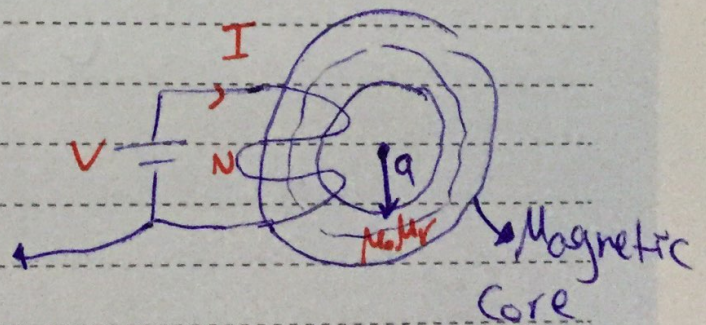 I
V
N
a
μ₀μᵣ
Magnetic
Core